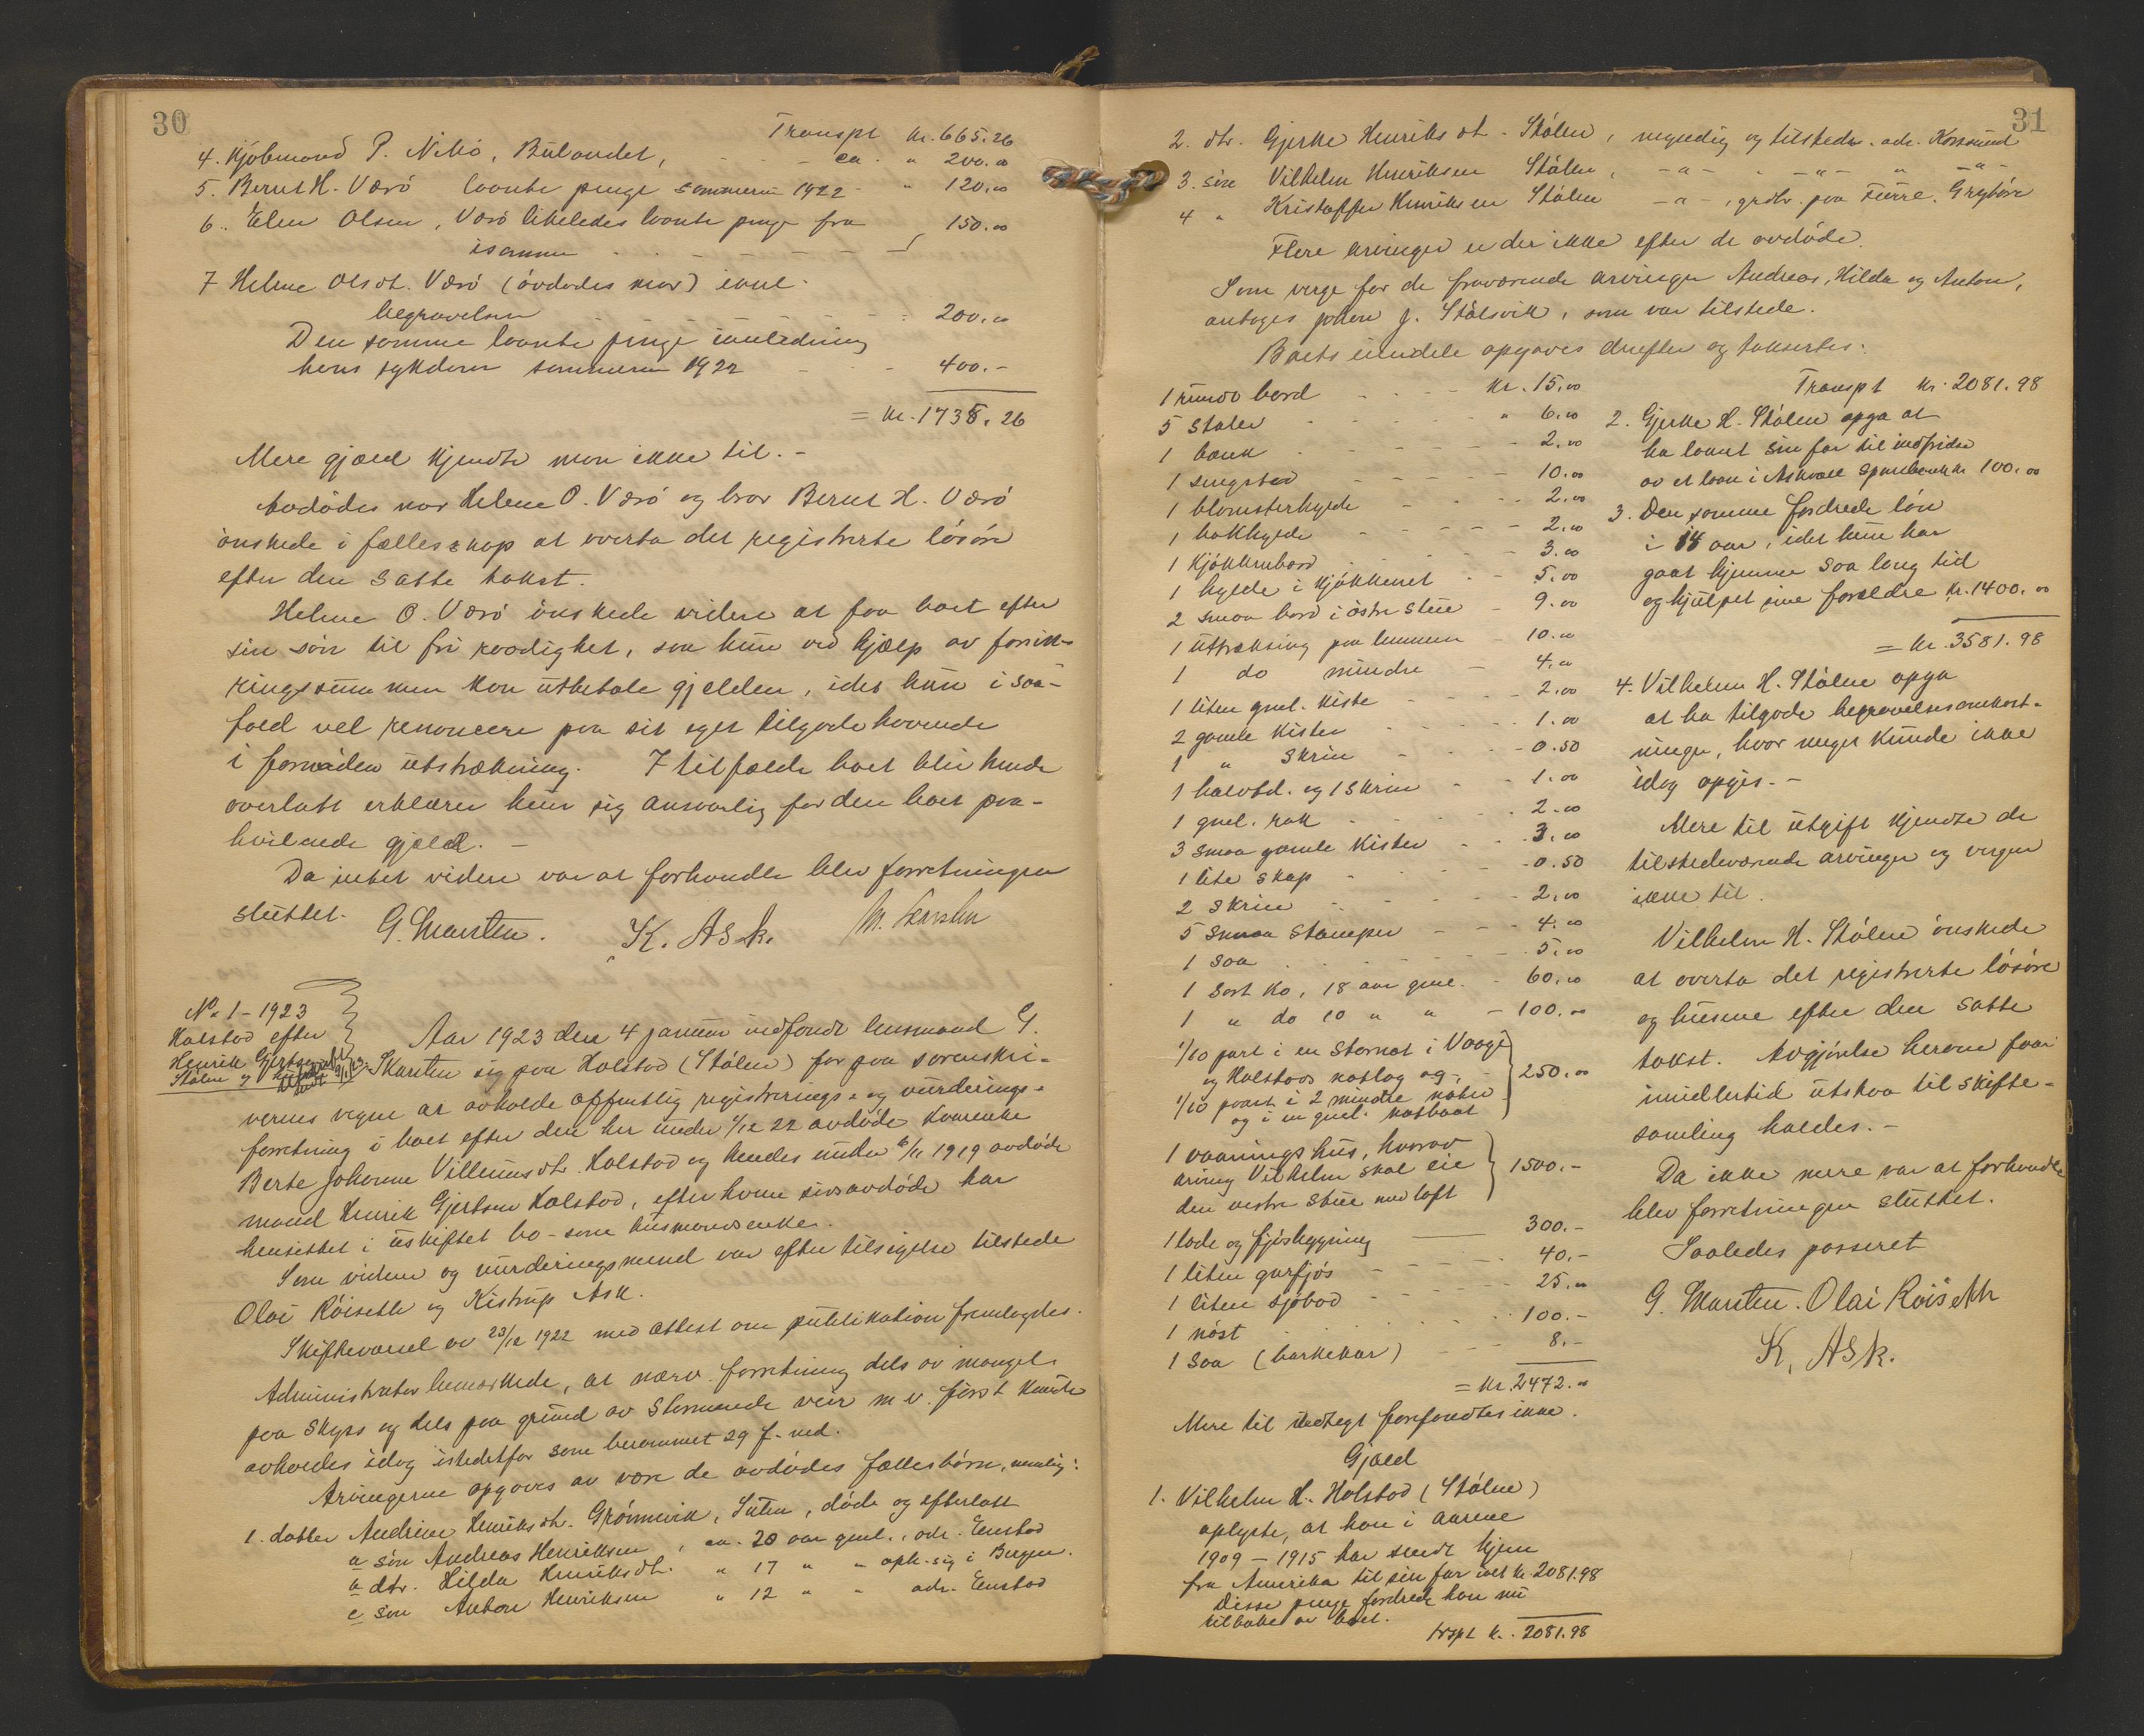 30
Transpt kr. 665.26
4. Kjöbmand P. Nikö, Bulandet, - - - ca. " 200.00
5. Bernt H. Værö laante penge sommeren 1922 - " 120.00
6. Elen Olsen, Værö likeledes laante penge fra
isamme - - - - 150.00
7 Helene Olsdt. Værö (avdödes mor) ianl.
begravelsen - - : 200.00
Den samme laante penge ianledning
hans sykdom sommeren 1922 - - - 400.-
= kr. 1735.26
Mere gjæld kjendte man ikke til. -
Avdödes mor Helene O. Værö og bror Bernt H. Værö
önskede i fællesskap at overta det registrerte lösöre
efter den satte takst.
Helene O. Værö önskede videre at faa boet efter
sin sön til fri raadighet, saa hun ved hjælp av forsik-
ringssummen kan utbetale gjælden, idet hun i saa-
fald vel renoncere paa sit eget tilgodehavende
i fornöden utstrækning. I tilfælde boet blir hende
overlatt erklærer hun sig ansvarlig for den boet paa-
hvilende gjæld. -
Da intet videre var at forhandle blev forretningen
sluttet.
G. Marsten. K. Ask.
No 1 - 1923
Holstad efter
Henrik Gjertsen
Stålen og hustru
Aar 1923 den 4 januar indfandt lensmand G.
Marsten sig paa Holstad (Stålen) for paa sorenskri-
verens vegne at avholde offentlig registrerings- og vurderings-
forretning i boet efter den her under 1/12 22 avdöde kaarenke
Berte Johanne Villumsdtr. Holstad og hendes under 1919 avdöde
mand Henrik Gjertsen Holstad, efter hvem sidstavdöde har
hensittet i uskiftet bo - som husmandsenke.
Som vidner og vurderingsmænd var efter tilsigelse tilstede
Olai Röiseth og Kistrup Ask.
Skiftevarsel av 23/12 1922 med attest om publikation fremlagdes.
Administrator bemerkede, at nærv. forretning dels av mangel
paa skyss og dels paa grund av stormende veir m.v. först kunde
avholdes idag istedetfor som berammet 29 f. md.
Arvingerne opgaves av være de avdödes fællesbörn, nemlig:
1. datter Andrine Henriksdtr. Grönnevik, Sulen, döde og efterlatt
a sön Andreas Henriksen, ca. 20 aar gml., adr. Enstad
b dtr. Hilda Henriksdtr. " 17 " " oph. sig i Bergen.
c sön Anton Henriksen " 12 " " adr. Enstad
31
2. dtr. Gjerke Henriksdt. Stålen, myndig og tilstede. adr. Korssund
3. sön Vilhelm Henriksen Stålen, -"- " -"- " -"-
4 " Kristoffer Henriksen Stålen -"-, grdbr. paa Furre, Grytöra
Flere arvinger er der ikke efter de avdöde.
Som verge for de fraværende arvinger Andreas, Hilda og Anton,
antoges Johan J. Stålsvik, som var tilstede.
Boets eiendele opgaves derefter og takseretes:
1 rundt bord - - - kr. 15.00
5 stoler - - - " 6.00
1 bænk - - - 2.00
1 sengsted - - - 10.00
1 blomsterhylde - - - 2.00
1 bakhylde - - - 2.00
1 kjökkenbord - - - 3.00
1 hylde i kjökkenet - - - 5.00
2 smaa bord i östre stue - 9.00
1 uttræksing paa lemmen - 10.00
1 do mindre - 4.00
1 liten gml. kiste - - - 2.00
2 gamle kister - - - 1.00
1 " skrin - - - 0.50
1 halvtd. og 1 skrin - - 1.00
1 gml. rok - - - 2.00
3 smaa gamle kister - - 3.00
1 lite skap - - - 0.50
2 skrin - - - 2.00
5 smaa stamper - - - 4.00
1 saa - - - 5.00
1 sort ko, 18 aar gml. - 60.00
1 " do 10 " " - 100.00
1/10 part i en stornot i Vaage
og Holstads notlag og
1/10 paart i 2 mindre nöter
og i en gml. notbaat 250.00
1 vaaningshus, hvorav
arving Vilhelm skal eie
den vestre stue med loft 1500.-
1 lade og fjösbygning — 300.-
1 liten gurfjös - - - 40.-
1 liten sjöbod - - - 25.00
1 nöst - - - 100.-
1 saa (barkekar) - - - 8.-
= kr. 2472.00
Mere til indtægt forefandtes ikke.
Gjæld
1. Vilhelm H. Holstad (Stålen)
oplyste, at han i aarene
1909 - 1915 har sendt hjem
fra Amerika til sin far ialt kr. 2081.98
Disse penge fordrede han nu
tilbake av boet.
trspt kr. 2081.98
Transpt kr. 2081.98
2. Gjerke H. Stålen opga at
ha laant sin far til indfridse
av et laan i Askvoll sparebank kr. 100.00
3. Den samme fordrede lön
i 14 aar, idet hun har
gaat hjemme saa lang tid
og hjulpet sine forældre kr. 1400.00
= kr. 3581.98
4. Vilhelm H. Stålen opga
at ha tilgode begravelsesomkost-
ninger, hvor meget kunde ikke
idag opgis. -
Mere til utgift kjendte de
tilstedeværende arvinger og vergen
ikke til.
Vilhelm H. Stålen önskede
at overta det registrerte lösöre
og husene efter den satte
takst. Avgjörelse herom faar
imidlertid utstaa til skifte-
samling holdes. -
Da ikke mere var at forhandle
blev forretningen sluttet.
Saaledes passeret
G. Marsten. Olai Röiseth
K. Ask.